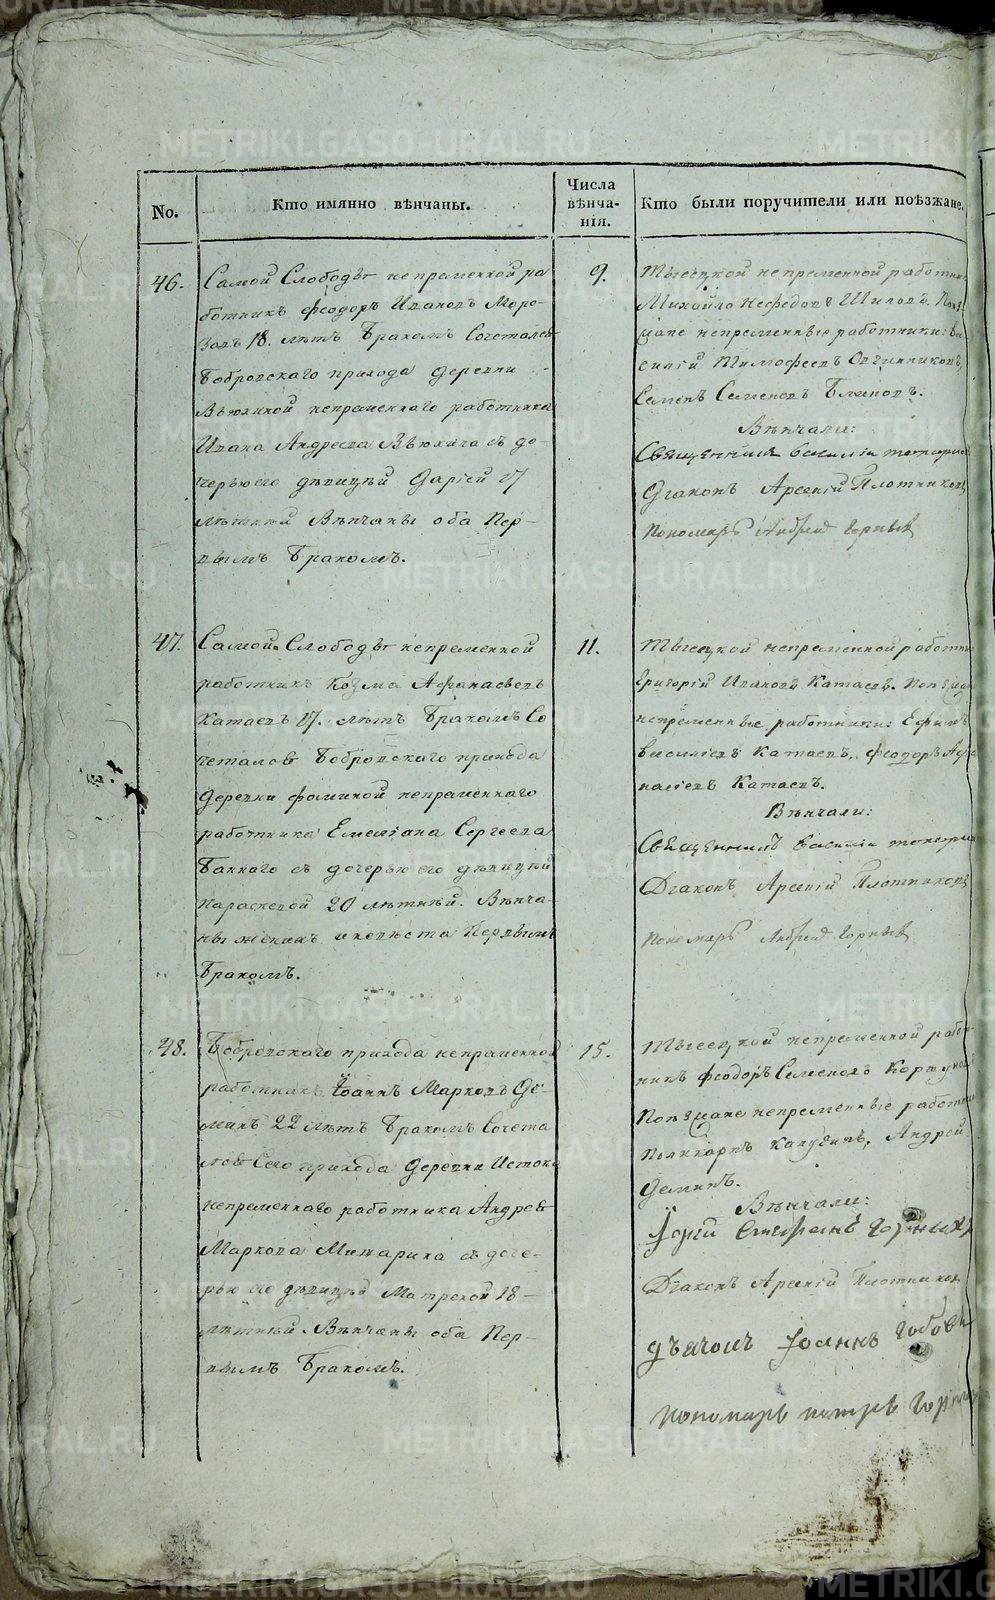 No.
Кто имянно вѣнчаны.
Числа
вѣнча-
нія.
Кто были поручители или поѣзжане.
46.
Самой Слободѣ непременной ра
ботникъ Феодоръ Ивановъ Моро-
зовъ 18. лѣтъ Бракомъ Сочетался
Бобровскаго прихода деревни
Вьюхиной непременнаго работника
Ивана Андреева Вьюхина съ до-
черью его дѣвицѣй Дарїей 17
лѣтнѣй Вѣнчаны оба Пер-
вымъ Бракомъ.
9.
непременной работник
Михайло Нефедовъ Шиловъ. Поѣ
жане непременные работники: Ва
силїй Тимофеевъ Овчинниковъ,
Семенъ Семеновъ Блиновъ.
Вѣнчали:
Священникъ Василїи
Дїаконъ Арсенїй Плотниковъ
Пономарь Андрей Горныхъ
47.
Самой Слободѣ непременной
работникъ Козма Афанасьевъ
Катаевъ 17. лѣтъ Бракомъ Со
четался Бобровскаго прихода
деревни Фоминой непременнаго
работника Емелїана Сергеева
Банного съ дочерью его дѣвицѣй
Параскевой 20 лѣтнѣй. Вѣнча-
ны женихъ и невѣста Первымъ
Бракомъ.
11.
непременной работни
Григорїй Ивановъ Катаевъ. Поѣзжан
непременные работники: Ефимъ
Василїевъ Катаевъ, Феодоръ Афа
насїевъ Катаевъ.
Вѣнчали:
Священникъ Василїи
Дїаконъ Арсенїй Плотниковъ
Пономарь Андрей Горныхъ
48.
Бобровскаго прихода непременной
работникъ Їоаннъ Марковъ Де-
минъ 22 лѣтъ Бракомъ Сочета
лся Сего прихода Деревни Истока
непременнаго работника Андрея
Маркова Минарина съ доче-
рью его дѣвицѣй Матреной 18-
лѣтнѣй. Вѣнчаны оба Пер-
вымъ Бракомъ.
15.
непременной работ-
никъ Феодоръ Семеновъ
Поѣзжане непременные работни
Поликарпъ Андрей
Деминъ.
Вѣнчали:
Їерей Стефанъ Горныхъ
Дїаконъ Арсенїй Плотников
Дьячокъ Їоаннъ
Пономарь Петръ Горных
METRIKI.GASO-URAL.RU